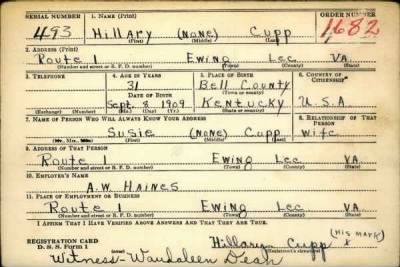 SERIAL NUMBER 1. NAME (Print) ORDER NUMBER
493 Hillary (None) Cupp 1682
(First) (Middle) (Last)
2. ADDRESS (Print)
Route 1 Ewing Lee VA.
(Number and street or R. F. D. number) (Town) (County) (State)
3. TELEPHONE 4. AGE IN YEARS 5. PLACE OF BIRTH 6. COUNTRY OF CITIZENSHIP
31 Bell County
DATE OF BIRTH (Town or county)
Sept. 8 1909 Kentucky U.S.A.
(Exchange) (Number) (Mo.) (Day) (Yr.) (State or country)
7. NAME OF PERSON WHO WILL ALWAYS KNOW YOUR ADDRESS 8. RELATIONSHIP OF THAT PERSON
Susie (None) Cupp wife
(Mr., Mrs., Miss) (First) (Middle) (Last)
9. ADDRESS OF THAT PERSON
Route 1 Ewing Lee VA.
(Number and street or R. F. D. number) (Town) (County) (State)
10. EMPLOYER'S NAME
A.W. HAINES
11. PLACE OF EMPLOYMENT OR BUSINESS
Route 1 Ewing Lee VA.
(Number and street or R. F. D. number) (Town) (County) (State)
I AFFIRM THAT I HAVE VERIFIED ABOVE ANSWERS AND THAT THEY ARE TRUE.
REGISTRATION CARD
D. S. S. Form 1
Hillary Cupp (His mark) x
(Registrant's signature)
Witness - Waudaleen Dean